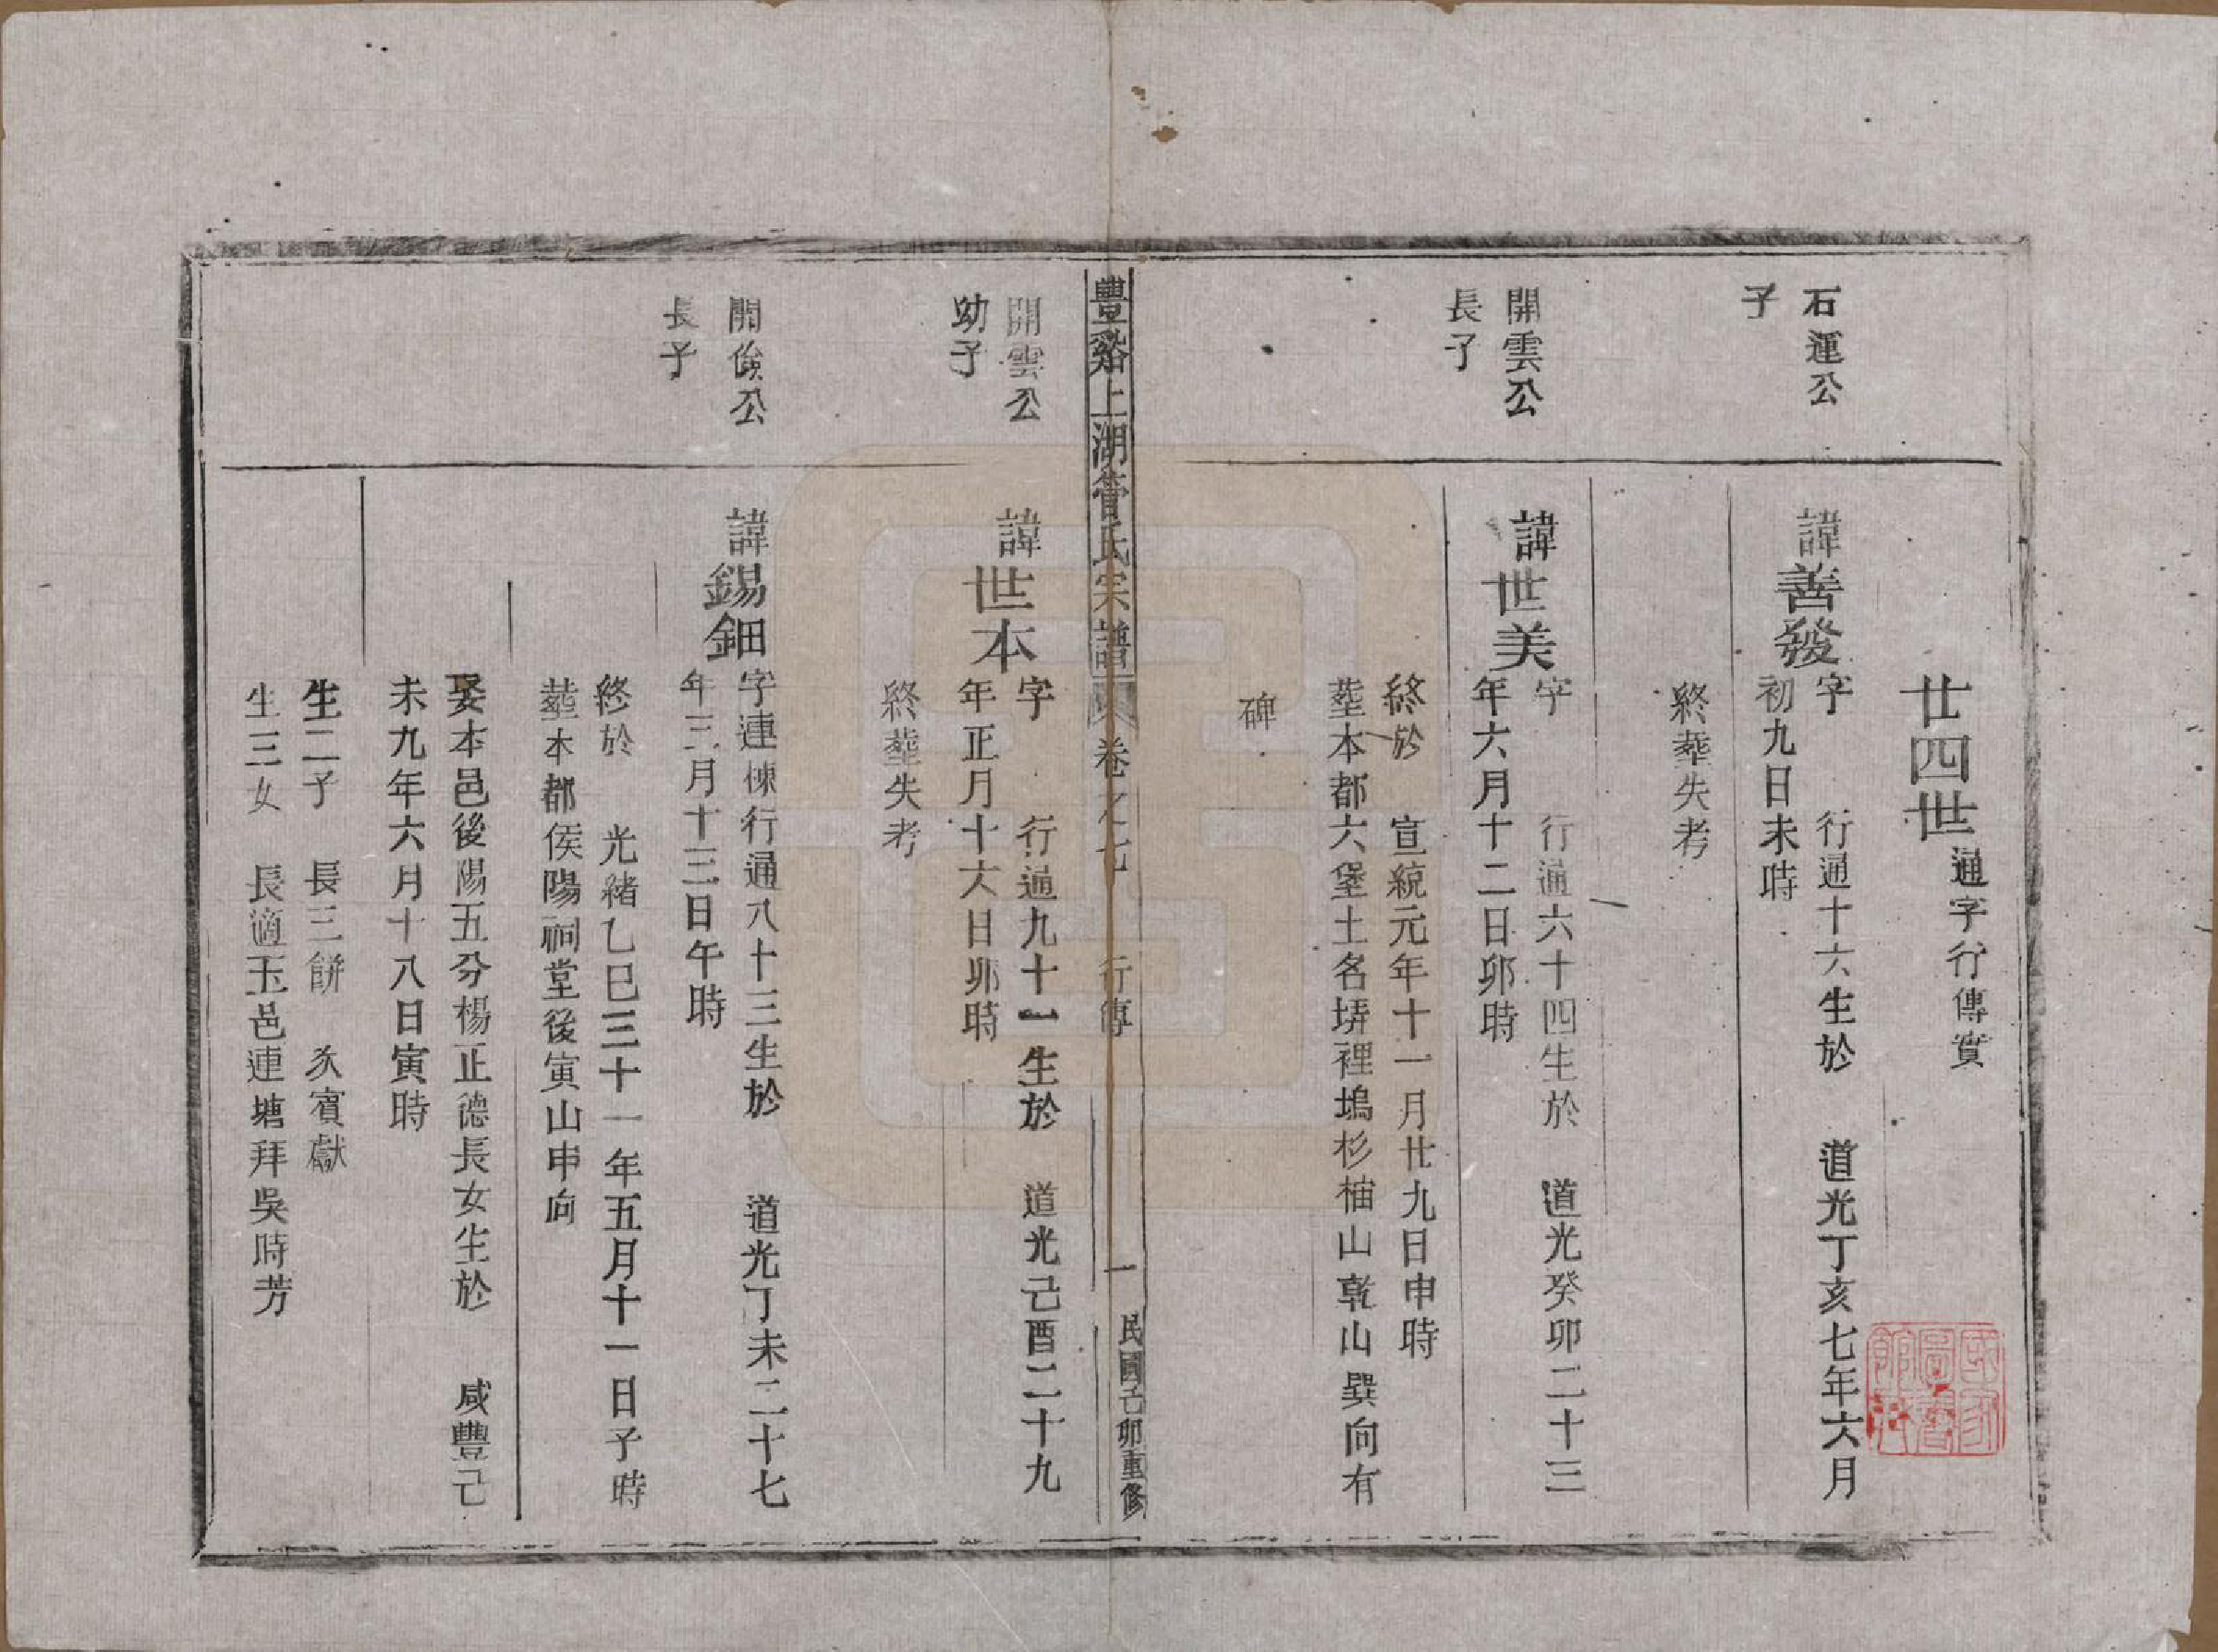 廿四世通字行傳實
石運公
子
諱善發字 行通十六生於 道光丁亥七年六月
初九日未時
終塟失考
開雲公
長子
諱世美字 行通六十四生於 道光癸卯二十三
年六月十二日卯時
終於 宣統元年十一月廿九日申時
塟本都六堡土名塝裡塢杉柚山乾山巽向有
碑
豐谿上湖管氏宗譜 卷之七 行傳 一 民國己卯重修
開雲公
幼子
諱世本字 行通九十一生於 道光己酉二十九
年正月十六日卯時
終塟失考
開俊公
長子
諱錫鈿字連棟行通八十三生於 道光丁未二十七
年三月十三日午時
終於 光緒乙巳三十一年五月十一日子時
塟本都侯陽祠堂後寅山申向
娶本邑後陽五分楊正德長女生於 咸豐己
未九年六月十八日寅時
生二子 長三餅 次賓獻
生三女 長適玉邑連塘拜吳時芳
國家圖書館藏